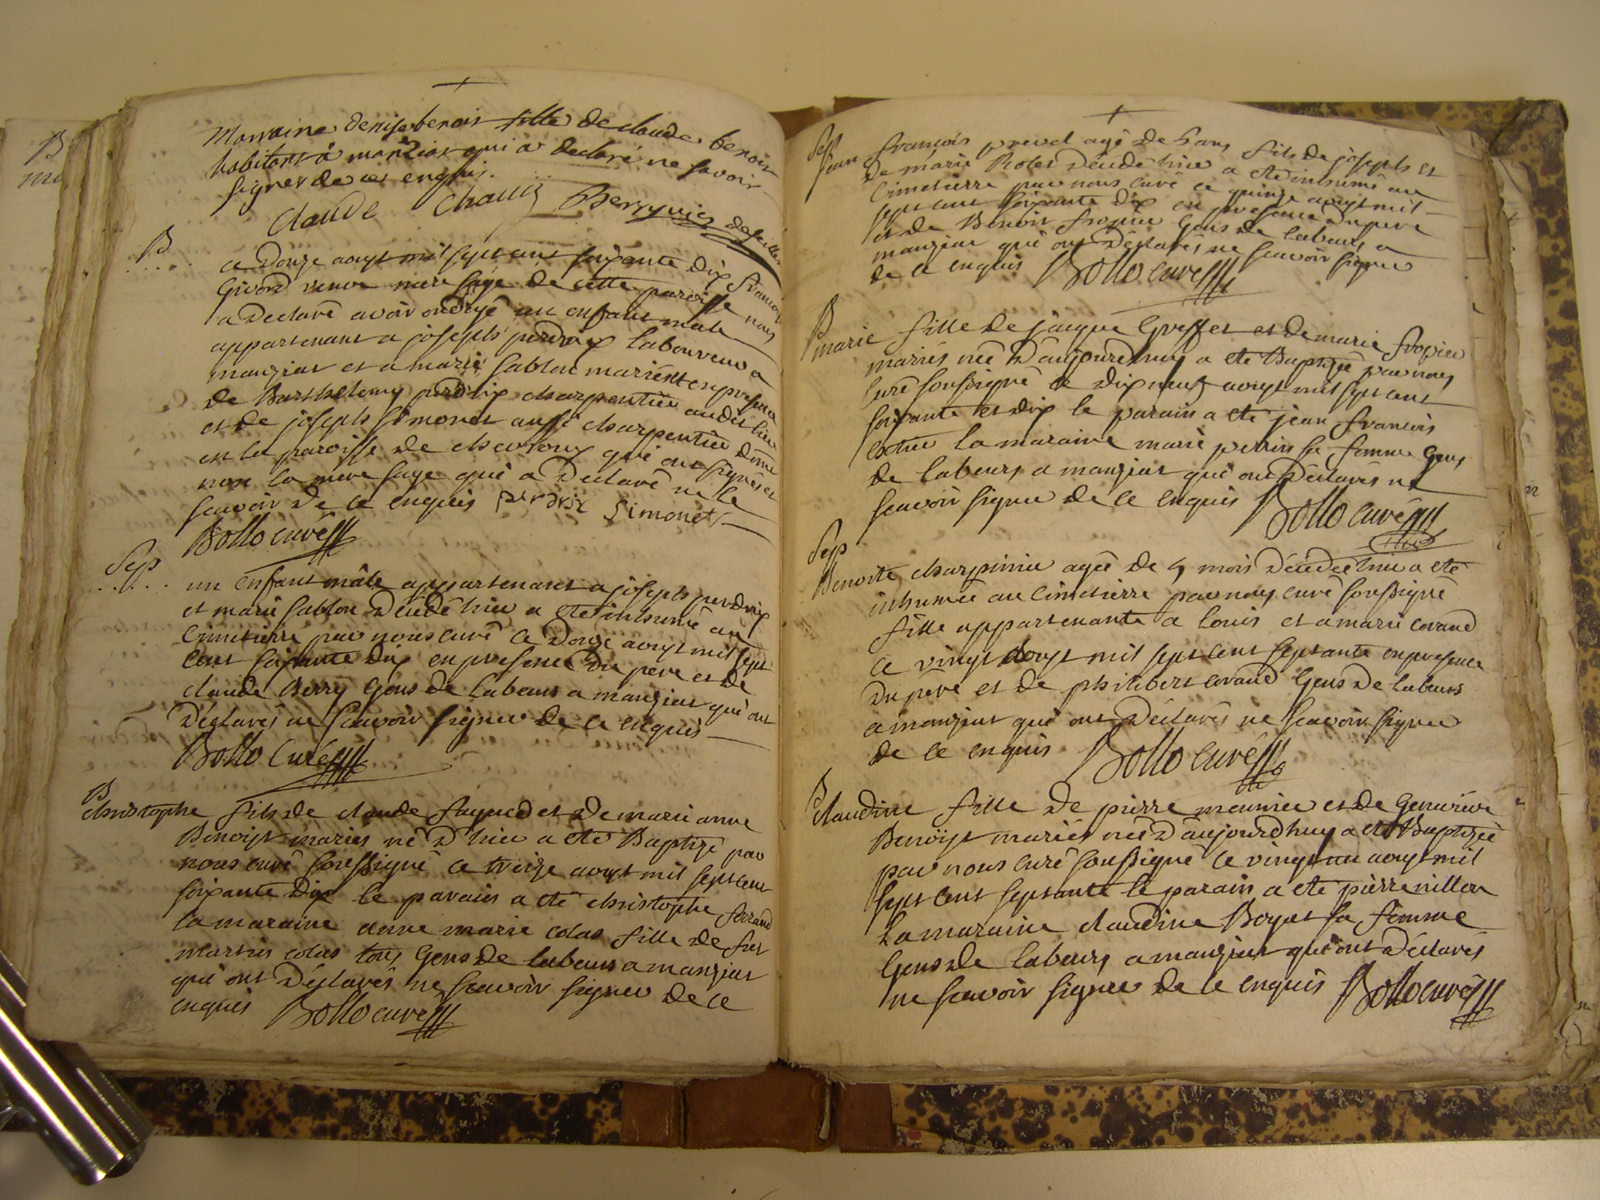 B
Marraine denise benois fille de claude benoist
habitant à manziat qui a declaré ne savoir
signer de ce enquis.
Claude Chanel
B
ce Douze aoust mil sept cent soixante Dix francoise
Givord veuve mere sage de cette paroisse nous
a Declaré avoir ondoyé un enfant male
appartenant a joseph perdrix laboureur a
manziat et a marie sablon mariés et en presence
de Barthelemy perdrix charpentier audit lieu
et de joseph Simonet aussi charpentier dem
en la paroisse de chevroux qui ont signés et
non la mere sage qui a Déclaré ne le
scavoir De ce enquis perdrix Simonet
Bollo curé
Sep
un enfant mâle appartenant a joseph perdrix
et marie sablon Décédé hier a eté inhumé au
Cimetierre par nous curé ce Douze aoust mil sept
cent soixante Dix en presence Du pere et de
claude Berry Gens de labeur a manziat qui ont
Déclarés ne scavoir signer de ce enquis
Bollo Curé
B
christophe fils de claude fayard et de marianne
Benoist mariés né D'hier a eté Baptizé par
nous curé soussigné ce treize aoust mil sept cent
soixante Dix le parain a eté christophe ferrand
la maraine anne marie colas fille de feu
martin colas tous Gens de labeur a manziat
qui ont Déclarés ne scavoir signer de ce
enquis Bollo curé
Sep
jean francois prevel agé de 5 ans fils de joseph et
de marie Décédé hier a eté inhumé au
Cimetierre par nous curé ce quinze aoust mil
sept cent soixante dix en presence du pere
et de Benoit fropier Gens de labeur a
manziat qui ont Déclarés ne scavoir signer
de ce enquis Bollo curé
B
marie fille de jacque Greffet et de marie fropier
mariés née D'aujourdhuy a eté Baptizée par nous
curé soussigné ce dix neuf aoust mil sept cent
soixante et dix le parain a eté jean francois
la maraine marie perrin sa femme Gens
de labeurs a manziat qui ont Déclarés ne
scavoir signer de ce enquis Bollo curé
Sep
Benoite charpinier agée de 4 mois Décédée hier a eté
inhumée au Cimetierre par nous curé soussigné
fille appartenante a louis et a marie corand
ce vingt aoust mil sept cent septante en presence
Du pere et de philibert corand Gens De labeurs
a manziat qui ont Déclarés ne scavoir signer
de ce enquis Bollo curé
B
claudine fille de pierre meunier et de Genevieve
Benoist mariés née D'aujourdhuy a eté Baptizée
par nous curé soussigné ce vingt un aoust mil
sept cent septante le parain a eté pierre nillon
La maraine claudine Boyat sa femme
Gens de labeurs a manziat qui ont Déclarés
ne scavoir signer de ce enquis Bollo curé